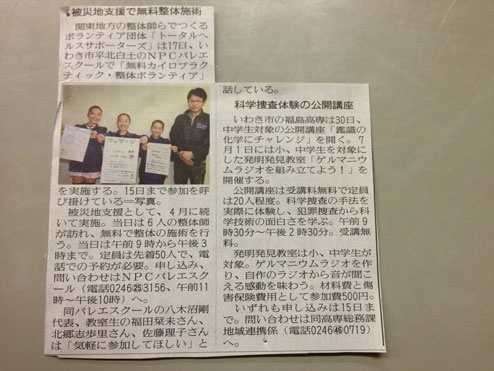 被災地支援で無料整体施術
関東地方の整体師らでつくる
ボランティア団体「トータルヘ
ルスサポーターズ」は17日、い
わき市平北白土のNPCバレエ
スクールで「無料カイロプラク
ティック・整体ボランティア」
を実施する。15日まで参加を呼
び掛けている=写真。
被災地支援として、4月に続
いて実施。当日は6人の整体師
が訪れ、無料で整体の施術を行
う。当日は午前9時から午後3
時まで。定員は先着50人で、電
話での予約が必要。申し込み、
問い合わせはNPCバレエスク
ール(電話0246㉕3156、午前11
時〜午後10時)へ。
同バレエスクールの八木沼剛
代表、教室生の福田栞未さん、
北郷志歩里さん、佐藤理子さん
は「気軽に参加してほしい」と
話している。
科学捜査体験の公開講座
いわき市の福島高専は30日、
中学生対象の公開講座「鑑識の
化学にチャレンジ」を開く。7
月1日には小、中学生を対象に
した発明発見教室「ゲルマニウ
ムラジオを組み立てよう!」を
開催する。
公開講座は受講料無料で定員
は20人程度。科学捜査の手法を
実際に体験し、犯罪捜査から科
学技術の面白さを学ぶ。午前9
時30分〜午後2時30分。受講無
料。
発明発見教室は小、中学生が
対象。ゲルマニウムラジオを作
り、自作のラジオから音が聞こ
える感動を味わう。材料費と傷
害保険費用として参加費500円。
いずれも申し込みは15日ま
で。問い合わせは同高専総務課
地域連携係(電話0246㊻0719)
へ。